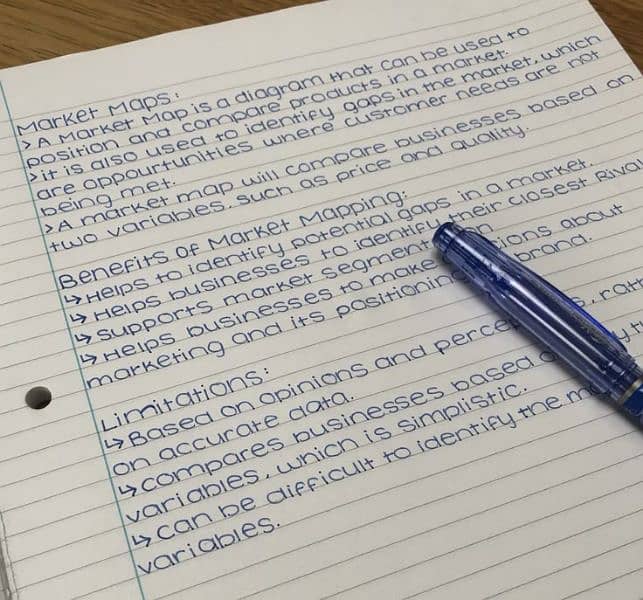 Market Maps:
> A Market Map is a diagram that can be used to
position and compare products in a market.
> it is also used to identify gaps in the market, which
are oppourtunities where customer needs are not
being met.
> A market map will compare businesses based on
two variables, such as price and quality.
Benefits of Market Mapping:
↳ Helps to identify potential gaps in a market.
↳ Helps businesses to identify their closest Rival
↳ supports market segment
↳ Helps businesses to make about
marketing and its positioning brand.
Limitations:
↳ Based on opinions and
on accurate data.
↳ compares businesses based
variables, which is simplistic.
↳ can be difficult to identify the
variables.